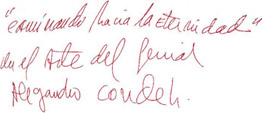 "caminando hacia la Eternidad"
en el Arte del genial
Alejandro Conde h.